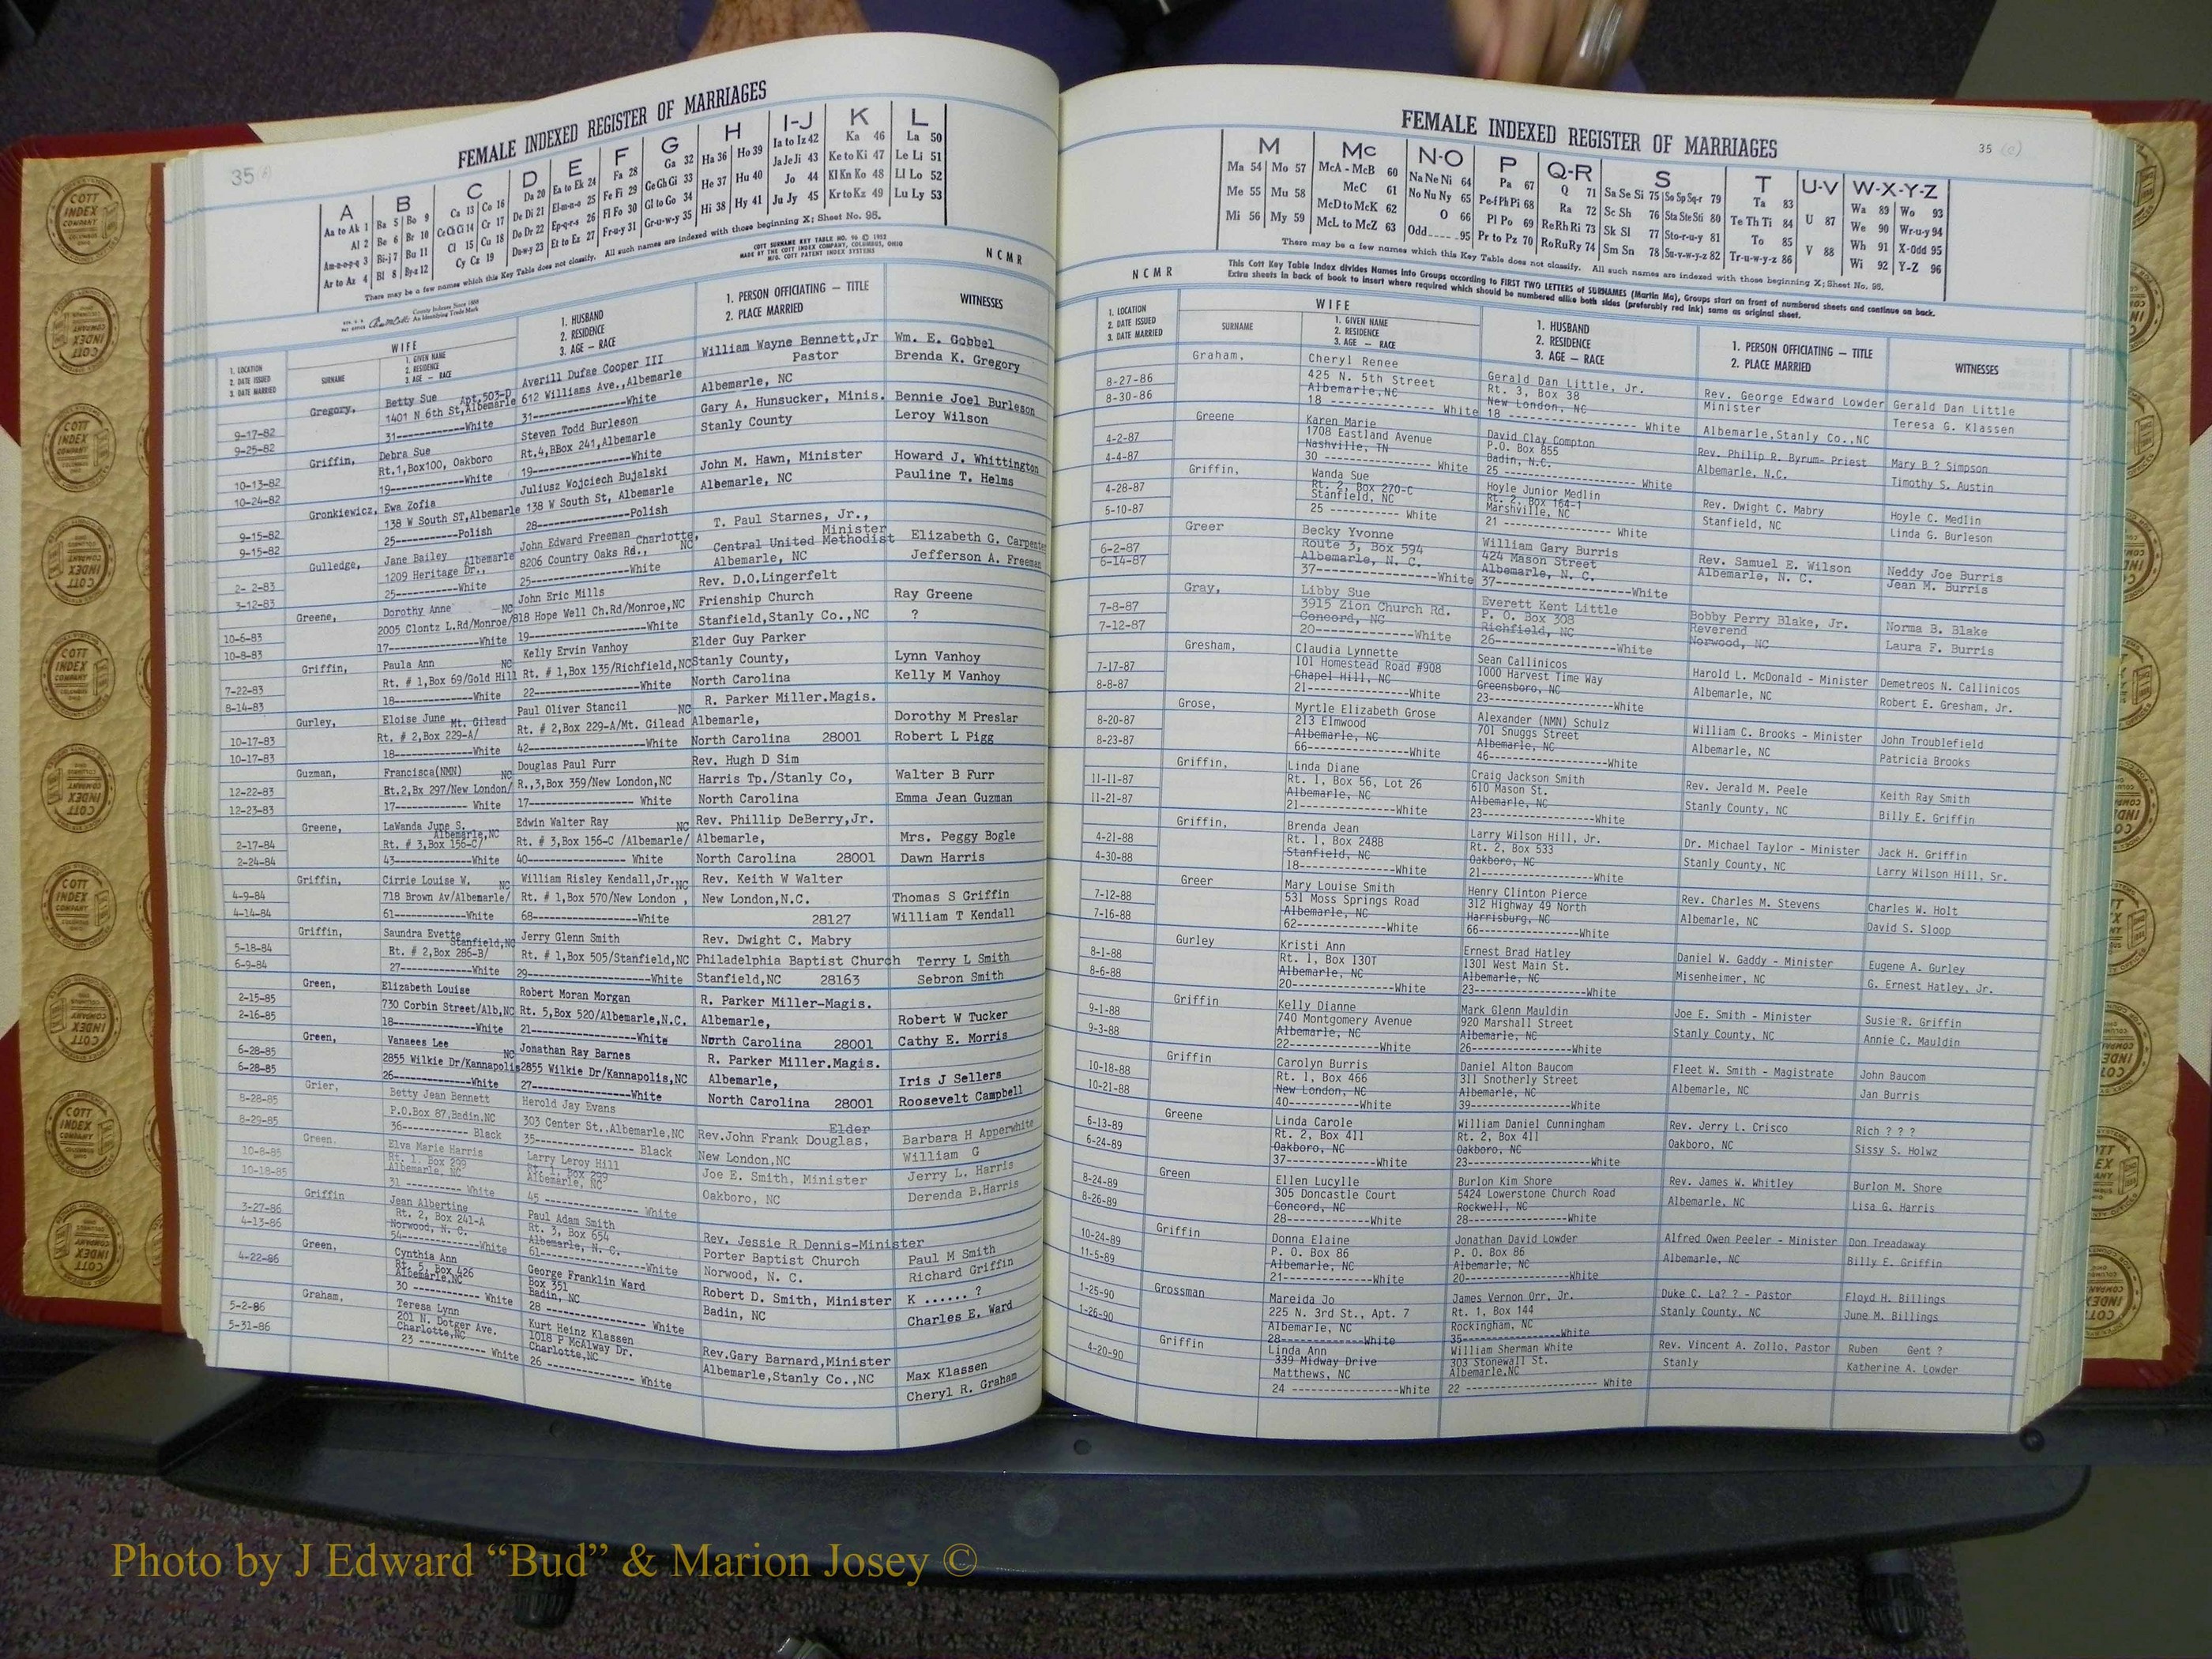 35(A)
FEMALE INDEXED REGISTER OF MARRIAGES
A B C D E F G H I-J K L
Aa to Ak 1 Ba 5 Bo 9 Ca 13 Co 16 Da 20 Ea to Ek 24 Fa 28 Ga 32 Ha 36 Ho 39 Ia to Iz 42 Ka 46 La 50
Al 2 Be 6 Br 10 Ce Ch Ci 14 Cr 17 De Di 21 El-m-n-o 25 Fe Fi 29 Ge Gh Gi 33 He 37 Hu 40 Ja Je Ji 43 Ke to Ki 47 Le Li 51
Am-n-o-p-q 3 Bi-j 7 Bu 11 Cl 15 Cu 18 Do Dr 22 Ep-q-r-s 26 Fl Fo 30 Gl to Go 34 Hi 38 Hy 41 Jo 44 Kl Kn Ko 48 Ll Lo 52
Ar to Az 4 Bl 8 By-z 12 Cy Cz 19 Du-w-y 23 Et to Ez 27 Fr-u-y 31 Gr-u-w-y 35 Ju Jy 45 Kr to Kz 49 Lu Ly 53
There may be a few names which this Key Table does not classify. All such names are indexed with those beginning X; Sheet No. 95.
County Indexes Since 1888
An Identifying Trade Mark
COTT SURNAME KEY TABLE NO. 96 © 1932
MADE BY THE COTT INDEX COMPANY, COLUMBUS, OHIO
MFG. COTT PATENT INDEX SYSTEMS
NCMR
1. LOCATION
2. DATE ISSUED
3. DATE MARRIED
WIFE
SURNAME
1. GIVEN NAME
2. RESIDENCE
3. AGE — RACE
1. HUSBAND
2. RESIDENCE
3. AGE — RACE
1. PERSON OFFICIATING — TITLE
2. PLACE MARRIED
WITNESSES
Gregory, Betty Sue Apt.503-D Averill Dufae Cooper III William Wayne Bennett,Jr Wm. E. Gobbel
9-17-82 1401 N 6th St,Albemarle 612 Williams Ave.,Albemarle Pastor Brenda K. Gregory
9-25-82 31------------White 31----------------White Albemarle, NC
Griffin, Debra Sue Steven Todd Burleson Gary A. Hunsucker, Minis. Bennie Joel Burleson
10-13-82 Rt.1,Box100, Oakboro Rt.4,BBox 241,Albemarle Stanly County Leroy Wilson
10-24-82 19------------White 19----------------White
Gronkiewicz, Ewa Zofia Juliusz Wojciech Bujalski John M. Hawn, Minister Howard J. Whittington
9-15-82 138 W South ST,Albemarle 138 W South St, Albemarle Albemarle, NC Pauline T. Helms
9-15-82 25-----------Polish 28---------------Polish
Gulledge, Jane Bailey Albemarle John Edward Freeman Charlotte, T. Paul Starnes, Jr., Minister Elizabeth G. Carpenter
2- 2-83 1209 Heritage Dr., 8206 Country Oaks Rd., NC Central United Methodist Jefferson A. Freeman
3-12-83 25------------White 25----------------White Albemarle, NC
Greene, Dorothy Anne NC John Eric Mills Rev. D.O.Lingerfelt
10-6-83 2005 Clontz L.Rd/Monroe/ 818 Hope Well Ch.Rd/Monroe,NC Frienship Church Ray Greene
10-8-83 17---------------White 19------------------White Stanfield,Stanly Co.,NC ?
Griffin, Paula Ann NC Kelly Ervin Vanhoy Elder Guy Parker
7-22-83 Rt. # 1,Box 69/Gold Hill Rt. # 1,Box 135/Richfield,NC Stanly County, Lynn Vanhoy
8-14-83 18-------------White 22-----------------White North Carolina Kelly M Vanhoy
Gurley, Eloise June Mt. Gilead Paul Oliver Stancil NC R. Parker Miller.Magis.
10-17-83 Rt. # 2,Box 229-A/ Rt. # 2,Box 229-A/Mt. Gilead Albemarle, Dorothy M Preslar
10-17-83 18-------------White 42------------------White North Carolina 28001 Robert L Pigg
Guzman, Francisca(NMN) NC Douglas Paul Furr Rev. Hugh D Sim
12-22-83 Rt.2,Bx 297/New London/ R.,3,Box 359/New London,NC Harris Tp./Stanly Co, Walter B Furr
12-23-83 17------------ White 17---------------- White North Carolina Emma Jean Guzman
Greene, LaWanda June S. Albemarle,NC Edwin Walter Ray NC Rev. Phillip DeBerry,Jr.
2-17-84 Rt. # 3,Box 156-C/ Rt. # 3,Box 156-C /Albemarle/ Albemarle, Mrs. Peggy Bogle
2-24-84 43-------------White 40--------------- White North Carolina 28001 Dawn Harris
Griffin, Cirrie Louise W. NC William Risley Kendall,Jr. NC Rev. Keith W Walter
4-9-84 718 Brown Av/Albemarle/ Rt. # 1,Box 570/New London , New London,N.C. Thomas S Griffin
4-14-84 61------------White 68------------------White 28127 William T Kendall
Griffin, Saundra Evette Stanfield,NC Jerry Glenn Smith Rev. Dwight C. Mabry
5-18-84 Rt. # 2,Box 286-B/ Rt. # 1,Box 505/Stanfield,NC Philadelphia Baptist Church Terry L Smith
6-9-84 27------------White 29-------------------White Stanfield,NC 28163 Sebron Smith
Green, Elizabeth Louise Robert Moran Morgan R. Parker Miller-Magis.
2-15-85 730 Corbin Street/Alb,NC Rt. 5,Box 520/Albemarle,N.C. Albemarle, Robert W Tucker
2-16-85 18--------------White 21-----------------White North Carolina 28001 Cathy E. Morris
Green, Vanaees Lee NC Jonathan Ray Barnes R. Parker Miller.Magis.
6-28-85 2855 Wilkie Dr/Kannapolis 2855 Wilkie Dr/Kannapolis,NC Albemarle, Iris J Sellers
6-28-85 26-------------White 27----------------White North Carolina 28001 Roosevelt Campbell
Grier, Betty Jean Bennett Herold Jay Evans Elder
8-28-85 P.O.Box 87,Badin,NC 303 Center St.,Albemarle,NC Rev.John Frank Douglas, Barbara H Apperwhite
8-29-85 36------------ Black 35---------------- Black New London,NC William G
Green, Elva Marie Harris Larry Leroy Hill Joe E. Smith, Minister Jerry L. Harris
10-8-85 Rt. 1, Box 299 Rt. 1, Box 629 Oakboro, NC Derenda B.Harris
10-18-85 Albemarle, NC Albemarle, NC
31 ---------- White 45 ------------- White
Griffin Jean Albertine Paul Adam Smith Rev. Jessie R Dennis-Minister
3-27-86 Rt. 2, Box 241-A Rt. 3, Box 654 Porter Baptist Church Paul M Smith
4-13-86 Norwood, N. C. Albemarle, N. C. Norwood, N. C. Richard Griffin
54------------White 61----------------White
Green, Cynthia Ann George Franklin Ward Robert D. Smith, Minister K ...... ?
4-22-86 Rt. 5, Box 426 Box 351 Badin, NC Charles E. Ward
Albemarle,NC Badin, NC
30 ------------ White 28 ------------- White
Graham, Teresa Lynn Kurt Heinz Klassen Rev.Gary Barnard,Minister
5-2-86 201 N. Dotger Ave. 1018 P McAlway Dr. Albemarle,Stanly Co.,NC Max Klassen
5-31-86 Charlotte,NC Charlotte,NC Cheryl R. Graham
23 ------------ White 26 ------------- White
FEMALE INDEXED REGISTER OF MARRIAGES
35 (C)
M Mc N-O P Q-R S T U-V W-X-Y-Z
Ma 54 Mo 57 McA - McB 60 Na Ne Ni 64 Pa 67 Q 71 Sa Se Si 75 So Sp Sq-r 79 Ta 83 U 87 Wa 89 Wo 93
Me 55 Mu 58 McC 61 No Nu Ny 65 Pe-f Ph Pi 68 Ra 72 Sc Sh 76 Sta Ste Sti 80 Te Th Ti 84 V 88 We 90 Wr-u-y 94
Mi 56 My 59 McD to McK 62 O 66 Pl Po 69 Re Rh Ri 73 Sk Sl 77 Sto-r-u-y 81 To 85 Wh 91 X-Odd 95
McL to McZ 63 Odd-----95 Pr to Pz 70 Ro Ru Ry 74 Sm Sn 78 Su-v-w-y-z 82 Tr-u-w-y-z 86 Wi 92 Y-Z 96
There may be a few names which this Key Table does not classify. All such names are indexed with those beginning X; Sheet No. 95.
NCMR
This Cott Key Table Index divides Names into Groups according to FIRST TWO LETTERS of SURNAMES (Martin Ma), Groups start on front of numbered sheets and continue on back.
Extra sheets in back of book to insert where required which should be numbered alike both sides (preferably red ink) same as original sheet.
1. LOCATION
2. DATE ISSUED
3. DATE MARRIED
WIFE
SURNAME
1. GIVEN NAME
2. RESIDENCE
3. AGE — RACE
1. HUSBAND
2. RESIDENCE
3. AGE — RACE
1. PERSON OFFICIATING — TITLE
2. PLACE MARRIED
WITNESSES
Graham, Cheryl Renee Gerald Dan Little, Jr. Rev. George Edward Lowder Gerald Dan Little
8-27-86 425 N. 5th Street Rt. 3, Box 38 Minister Teresa G. Klassen
8-30-86 Albemarle,NC New London, NC Albemarle,Stanly Co.,NC
18 ---------- White 18 -------------- White
Greene Karen Marie David Clay Compton Rev. Philip R. Byrum- Priest Mary B ? Simpson
4-2-87 1708 Eastland Avenue P.O. Box 855 Albemarle, N.C. Timothy S. Austin
4-4-87 Nashville, TN Badin, N.C.
30 ------------- White 25 -------------- White
Griffin, Wanda Sue Hoyle Junior Medlin Rev. Dwight C. Mabry Hoyle C. Medlin
4-28-87 Rt. 2, Box 270-C Rt. 2, Box 164-1 Stanfield, NC Linda G. Burleson
5-10-87 Stanfield, NC Marshville, NC
25 ---------- White 21 ------------- White
Greer Becky Yvonne William Gary Burris Rev. Samuel E. Wilson Neddy Joe Burris
6-2-87 Route 3, Box 594 424 Mason Street Albemarle, N. C. Jean M. Burris
6-14-87 Albemarle, N. C. Albemarle, N. C.
37--------------White 37----------------White
Gray, Libby Sue Everett Kent Little Bobby Perry Blake, Jr. Norma B. Blake
7-8-87 3915 Zion Church Rd. P. O. Box 308 Reverend Laura F. Burris
7-12-87 Concord, NC Richfield, NC Norwood, NC
20-------------White 26---------------White
Gresham, Claudia Lynnette Sean Callinicos Harold L. McDonald - Minister Demetreos N. Callinicos
7-17-87 101 Homestead Road #908 1000 Harvest Time Way Albemarle, NC Robert E. Gresham, Jr.
8-8-87 Chapel Hill, NC Greensboro, NC
21-------------White 23---------------White
Grose, Myrtle Elizabeth Grose Alexander (NMN) Schulz William C. Brooks - Minister John Troublefield
8-20-87 213 Elmwood 701 Snuggs Street Albemarle, NC Patricia Brooks
8-23-87 Albemarle, NC Albemarle, NC
66-------------White 46---------------White
Griffin, Linda Diane Craig Jackson Smith Rev. Jerald M. Peele Keith Ray Smith
11-11-87 Rt. 1, Box 56, Lot 26 610 Mason St. Stanly County, NC Billy E. Griffin
11-21-87 Albemarle, NC Albemarle, NC
21-------------White 23---------------White
Griffin, Brenda Jean Larry Wilson Hill, Jr. Dr. Michael Taylor - Minister Jack H. Griffin
4-21-88 Rt. 1, Box 248B Rt. 2, Box 533 Stanly County, NC Larry Wilson Hill, Sr.
4-30-88 Stanfield, NC Oakboro, NC
18-------------White 21---------------White
Greer Mary Louise Smith Henry Clinton Pierce Rev. Charles M. Stevens Charles W. Holt
7-12-88 531 Moss Springs Road 312 Highway 49 North Albemarle, NC David S. Sloop
7-16-88 Albemarle, NC Harrisburg, NC
62------------White 66---------------White
Gurley Kristi Ann Ernest Brad Hatley Daniel W. Gaddy - Minister Eugene A. Gurley
8-1-88 Rt. 1, Box 130T 1301 West Main St. Misenheimer, NC G. Ernest Hatley, Jr.
8-6-88 Albemarle, NC Albemarle, NC
20-------------White 23---------------White
Griffin Kelly Dianne Mark Glenn Mauldin Joe E. Smith - Minister Susie R. Griffin
9-1-88 740 Montgomery Avenue 920 Marshall Street Stanly County, NC Annie C. Mauldin
9-3-88 Albemarle, NC Albemarle, NC
22------------White 26---------------White
Griffin Carolyn Burris Daniel Alton Baucom Fleet W. Smith - Magistrate John Baucom
10-18-88 Rt. 1, Box 466 311 Snotherly Street Albemarle, NC Jan Burris
10-21-88 New London, NC Albemarle, NC
40-----------White 39---------------White
Greene Linda Carole William Daniel Cunningham Rev. Jerry L. Crisco Rich ? ? ?
6-13-89 Rt. 2, Box 411 Rt. 2, Box 411 Oakboro, NC Sissy S. Holwz
6-24-89 Oakboro, NC Oakboro, NC
37-------------White 23---------------White
Green Ellen Lucylle Burlon Kim Shore Rev. James W. Whitley Burlon M. Shore
8-24-89 305 Doncastle Court 5424 Lowerstone Church Road Albemarle, NC Lisa G. Harris
8-26-89 Concord, NC Rockwell, NC
28------------White 28---------------White
Griffin Donna Elaine Jonathan David Lowder Alfred Owen Peeler - Minister Don Treadaway
10-24-89 P. O. Box 86 P. O. Box 86 Albemarle, NC Billy E. Griffin
11-5-89 Albemarle, NC Albemarle, NC
21-------------White 20---------------White
Grossman Mareida Jo James Vernon Orr, Jr. Duke C. La? ? - Pastor Floyd H. Billings
1-25-90 225 N. 3rd St., Apt. 7 Rt. 1, Box 144 Stanly County, NC June M. Billings
1-26-90 Albemarle, NC Rockingham, NC
28------------White 35---------------White
Griffin Linda Ann William Sherman White Rev. Vincent A. Zollo, Pastor Ruben Gent ?
4-20-90 339 Midway Drive 303 Stonewall St. Stanly Katherine A. Lowder
Matthews, NC Albemarle,NC
24 --------------White 22 ---------------- White
COTT
INDEX
COMPANY
Photo by J Edward “Bud” & Marion Josey ©